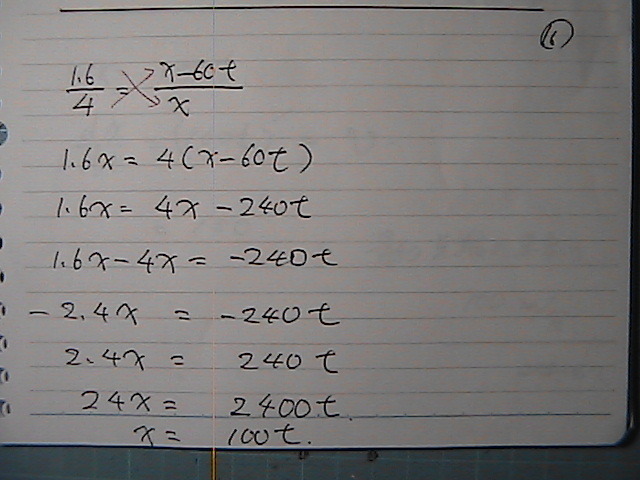 (6)
1.6/4 = x-60t/x
1.6x = 4(x-60t)
1.6x = 4x - 240t
1.6x - 4x = -240t
-2.4x = -240t
2.4x = 240t
24x = 2400t.
x = 100t.